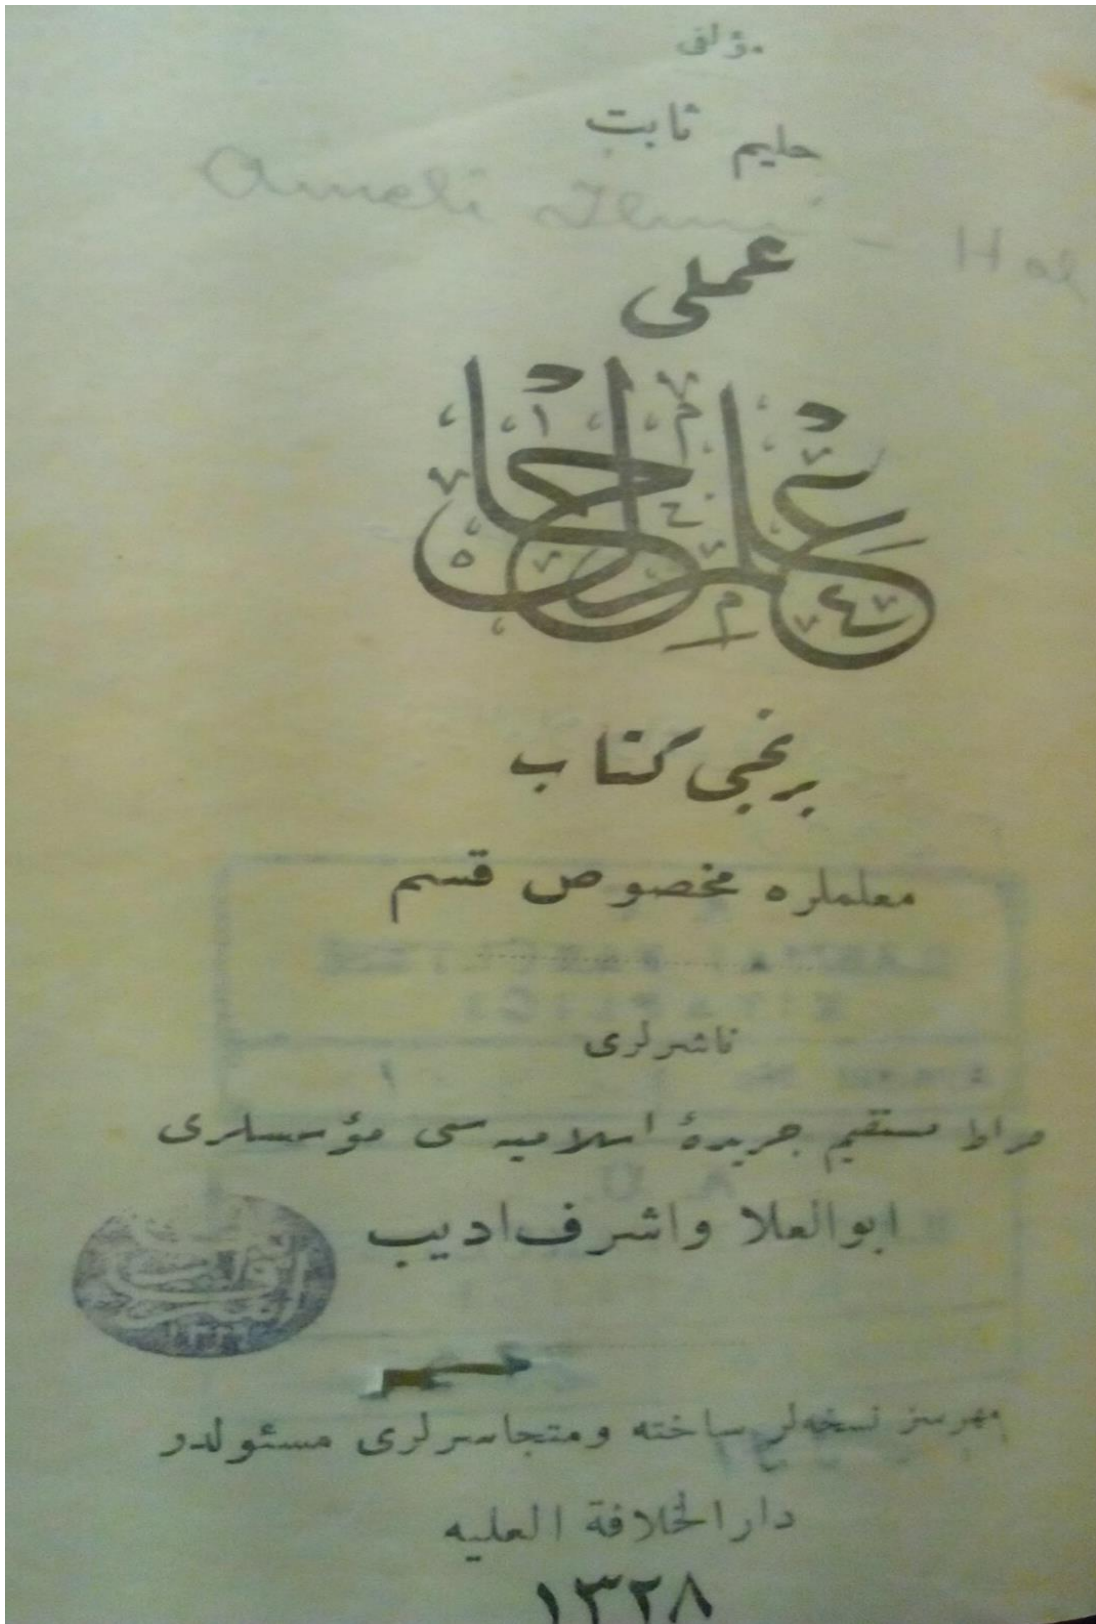 مؤلفی
حلیم ثابت
Ameli Ilmi - Hal
عملی
علم حال
برنجی کتاب
معلملره مخصوص قسم
ناشرلری
صراط مستقیم جریدۀ اسلامیه سی مؤسسلری
ابوالعلا واشرف ادیب
مهرسز نسخه لر ساخته ومتجاسرلری مسئولدر
دار الخلافة العلیه
١٣٢٨